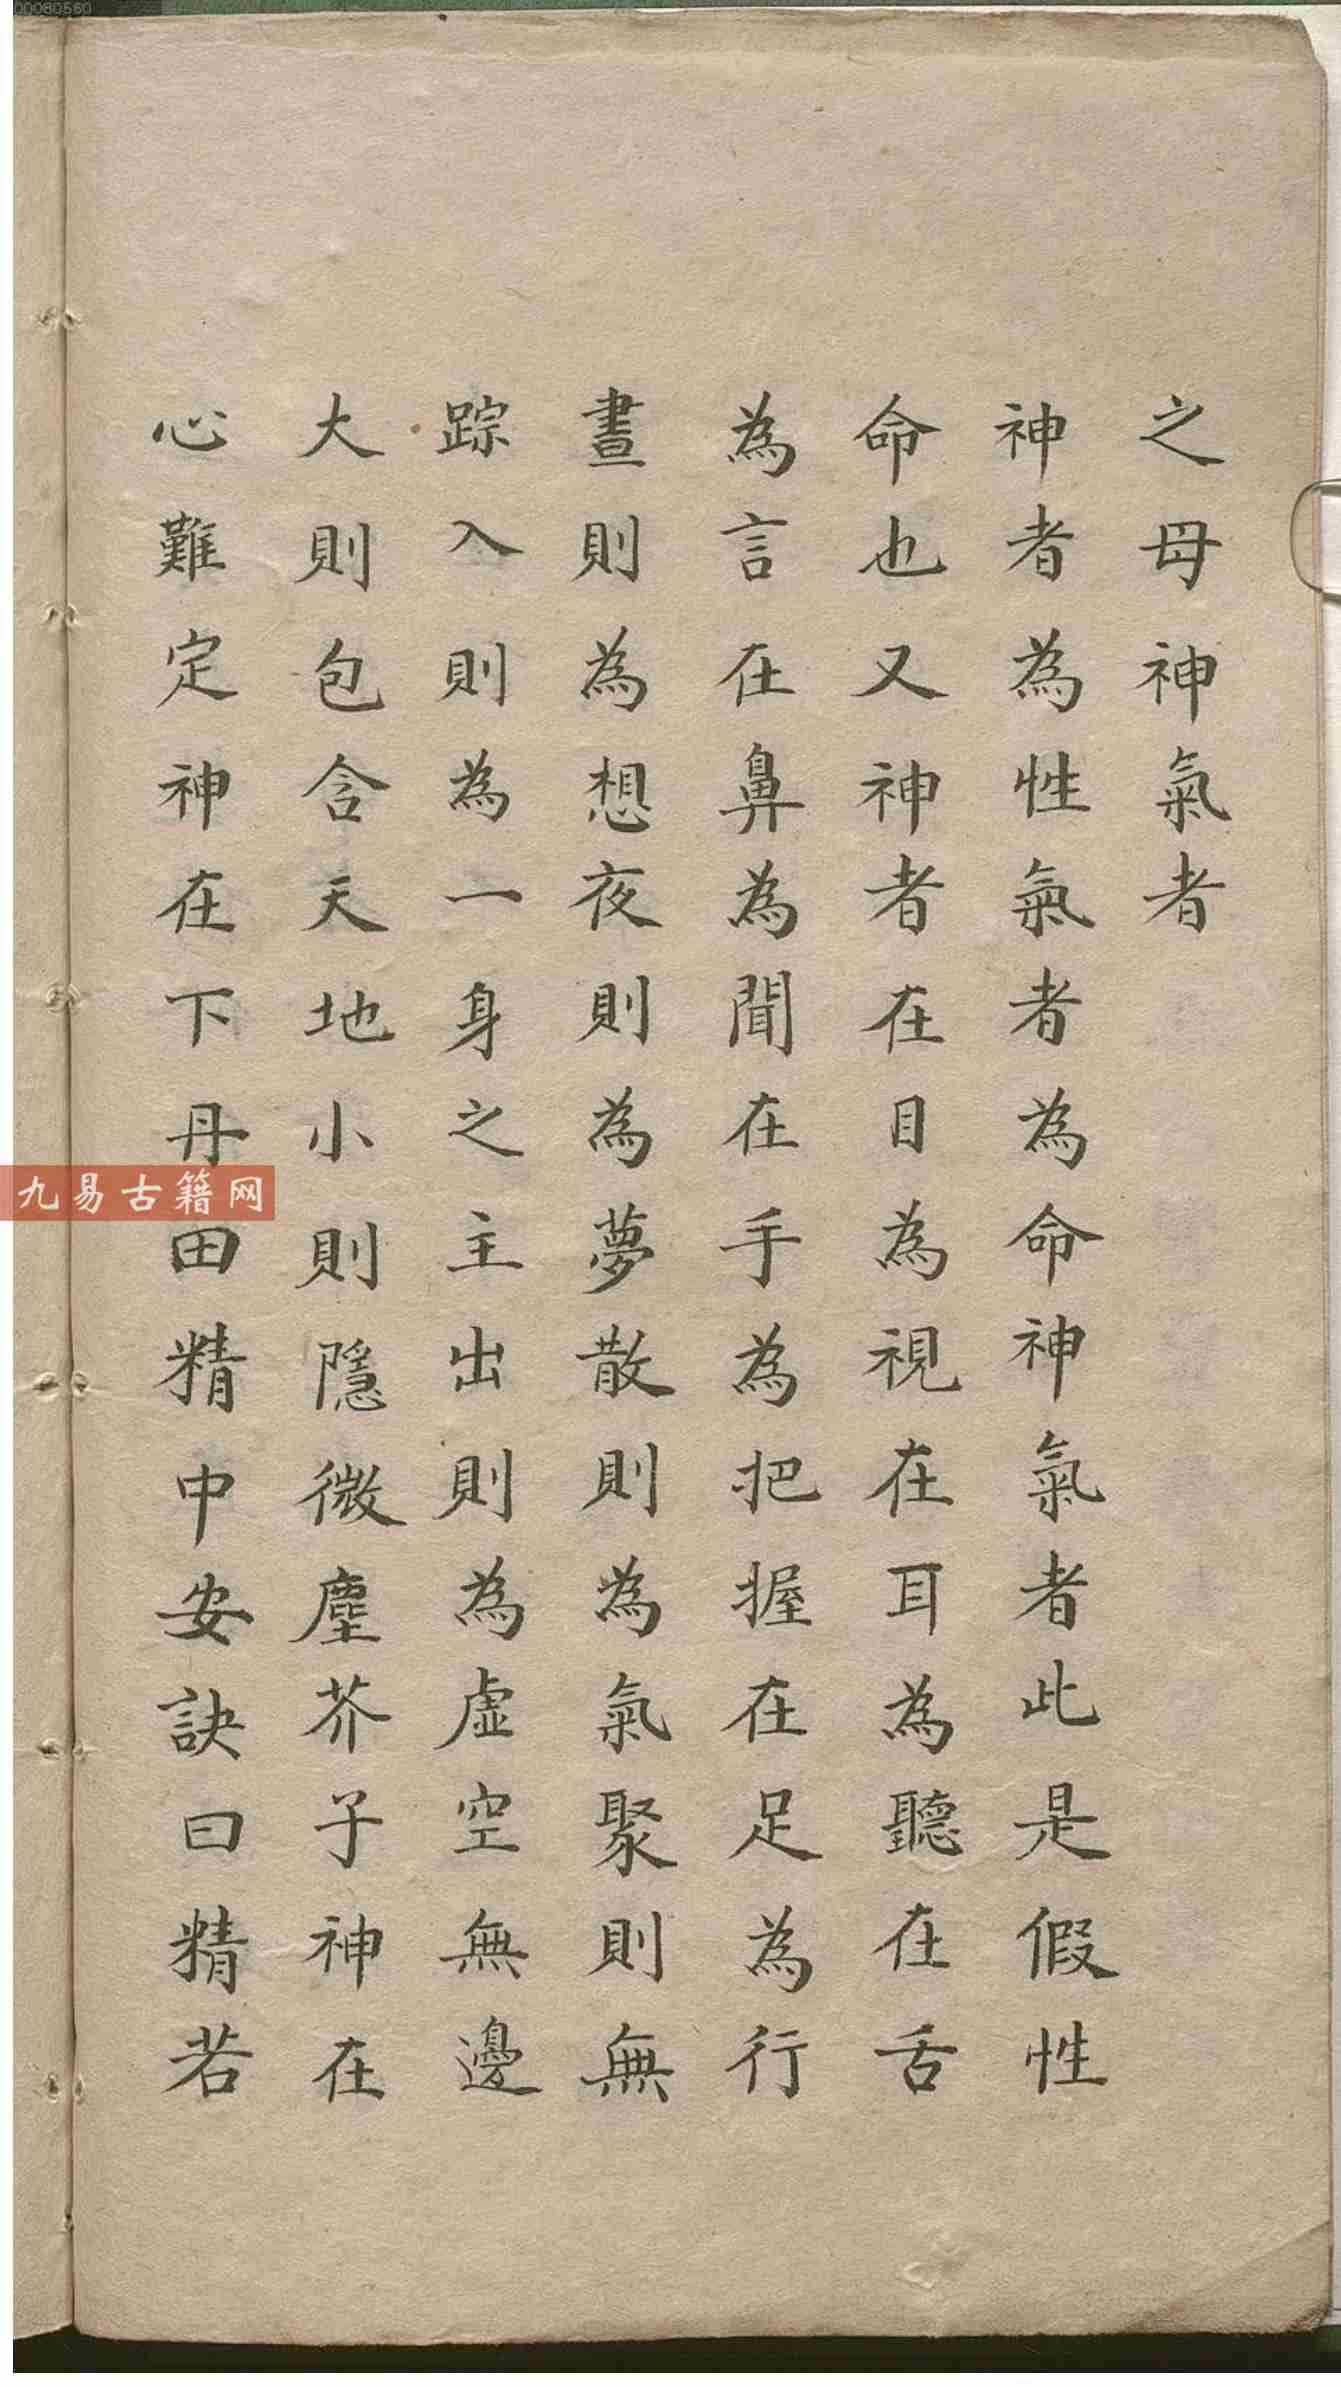 00060560
之母神氣者
神者為性氣者為命神氣者此是假性
命也又神者在目為視在耳為聽在舌
為言在鼻為聞在手為把握在足為行
晝則為想夜則為夢散則為氣聚則無
踪入則為一身之主出則為虛空無邊
大則包含天地小則隱微塵芥子神在
心難定神在下丹田精中安訣曰精若
九易古籍网